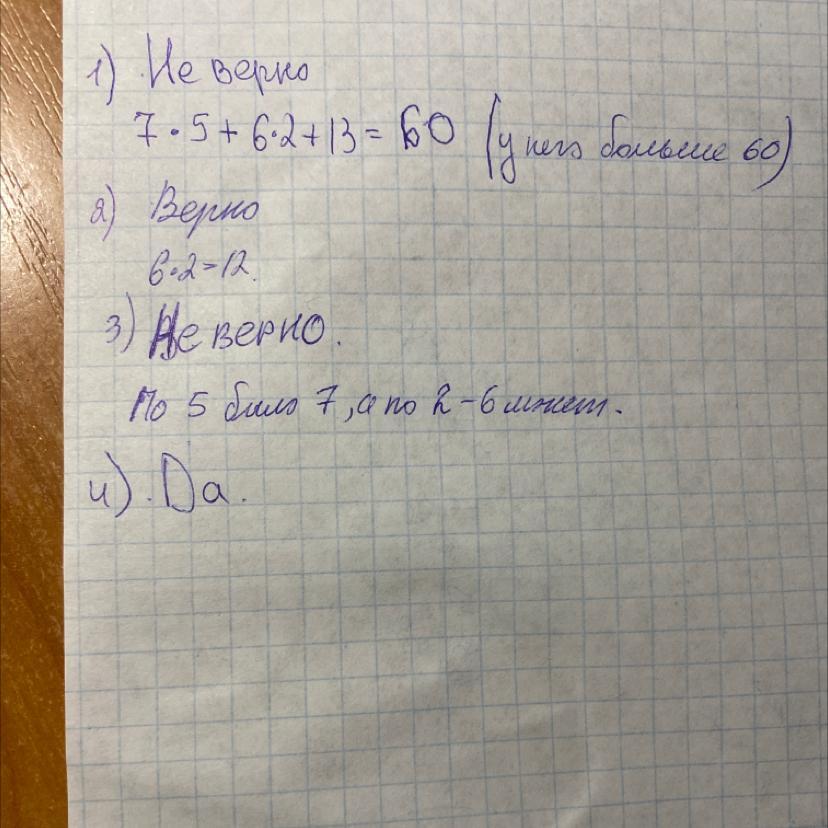 1) Не верно
7·5+6·2+13=60 (у него больше 60)
2) Верно
6·2=12.
3) Не верно.
По 5 было 7, а по 2-6 монет.
4). Да.